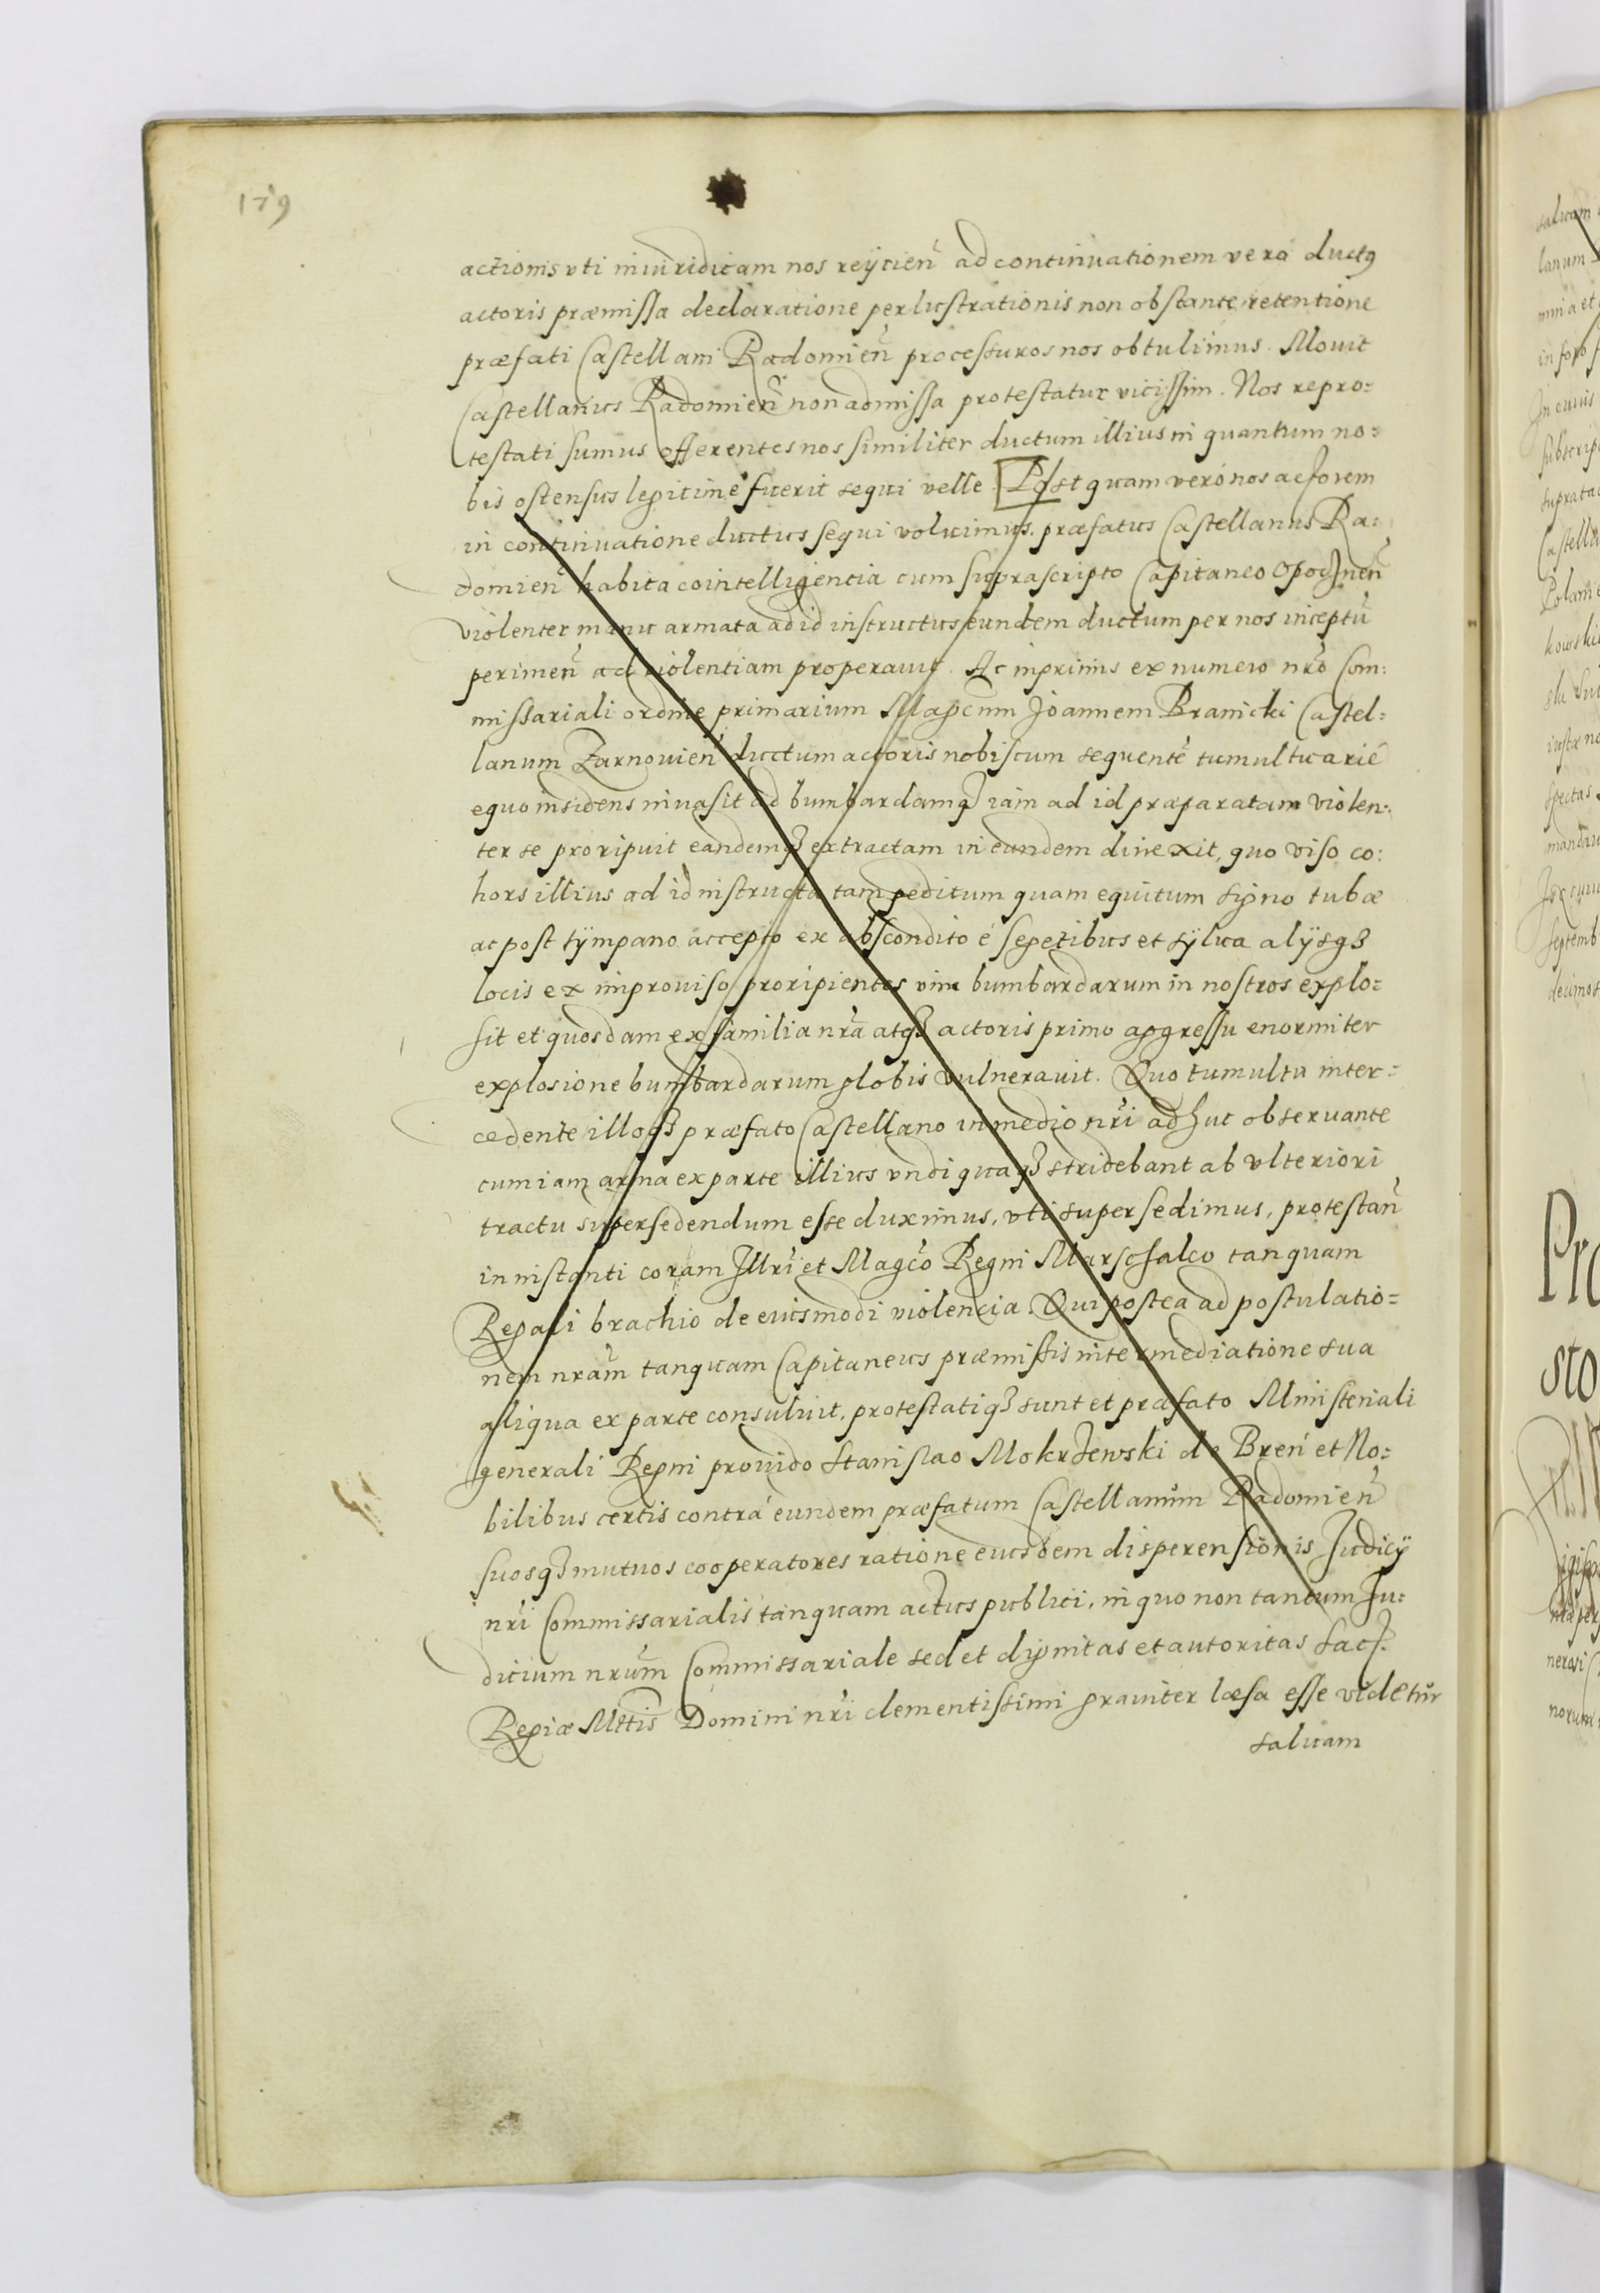 179
actionis vti iniuridicam nos reÿcien̄ ad continuationem verò ductꝯ
actoris præmissa declaratione perlustrationis non obstante retentione
præfati Castellani Radomien̄ processuros nos obtulimus. Mouit
Castellanus Radomien̄ non admissa protestatur vicissim. Nos repro:
testati sumus offerentes nos similiter ductum illius in quantum no:
bis ostensus legitimè fuerit sequi velle. Post quam verò nos actorem
in continuatione ductus sequi voluimus. præfatus Castellanus Ra:
domien̄ habita cointelligentia cum suprascripto Capitaneo Opocznen̄
violenter manu armata ad id instructus eundem ductum per nos inceptū
perimen̄ ad violentiam properauit. Ac inprimis ex numero nr̄o Com:
missariali ordine primarium Magcum̄ Joannem Branicki Castel:
lanum Zarnouien̄ ductum actoris nobiscum sequentē tumultuariè
equo insidens inuasit ad bumbardamqȝ iam ad id præparatam violen:
ter se proripuit eandemqȝ extractam in eundem direxit, quo viso co:
hors illius ad id instructa tam peditum quam equitum signo tubæ
ac post tÿmpano accepto ex abscondito è sepetibus et sÿlua alÿsqȝ
locis ex improuiso proripientes vim bumbardarum in nostros explo:
sit et quosdam ex familia nr̄a atqȝ actoris primo aggressu enormiter
explosione bumbardarum globis vulnerauit. Quo tumultu inter:
cedente illoqȝ præfato Castellano in medio nr̄i adhuc obseruante
cum iam arma ex parte illius vndiquaqȝ stridebant ab vlteriori
tractu supersedendum esse duximus, vti supersedimus, protestan̄
in instanti coram Illr̄i et Magc̄o Regni Marschalco tanquam
Regali brachio de eiusmodi violencia. Qui postea ad postulatio:
nem nram̄ tanquam Capitaneus præmissis intermediatione sua
aliqua ex parte consuluit, protestatiqȝ sunt et præfato Ministeriali
generali Regni prouido Stanislao Mokrzewski de Breń et No:
bilibus certis contrà eundem præfatum Castellanum Radomien̄
suosqȝ mutuos cooperatores ratione eiusdem dispersionis Judicÿ
nr̄i Commissarialis tanquam actus publici, in quo non tantum Ju:
dicium nrum̄ Commissariale sed et dignitas et autoritas Sacr̄:
Regiæ Mt̄tis Domini nr̄i clementissimi grauiter læsa esse videtur
saluam